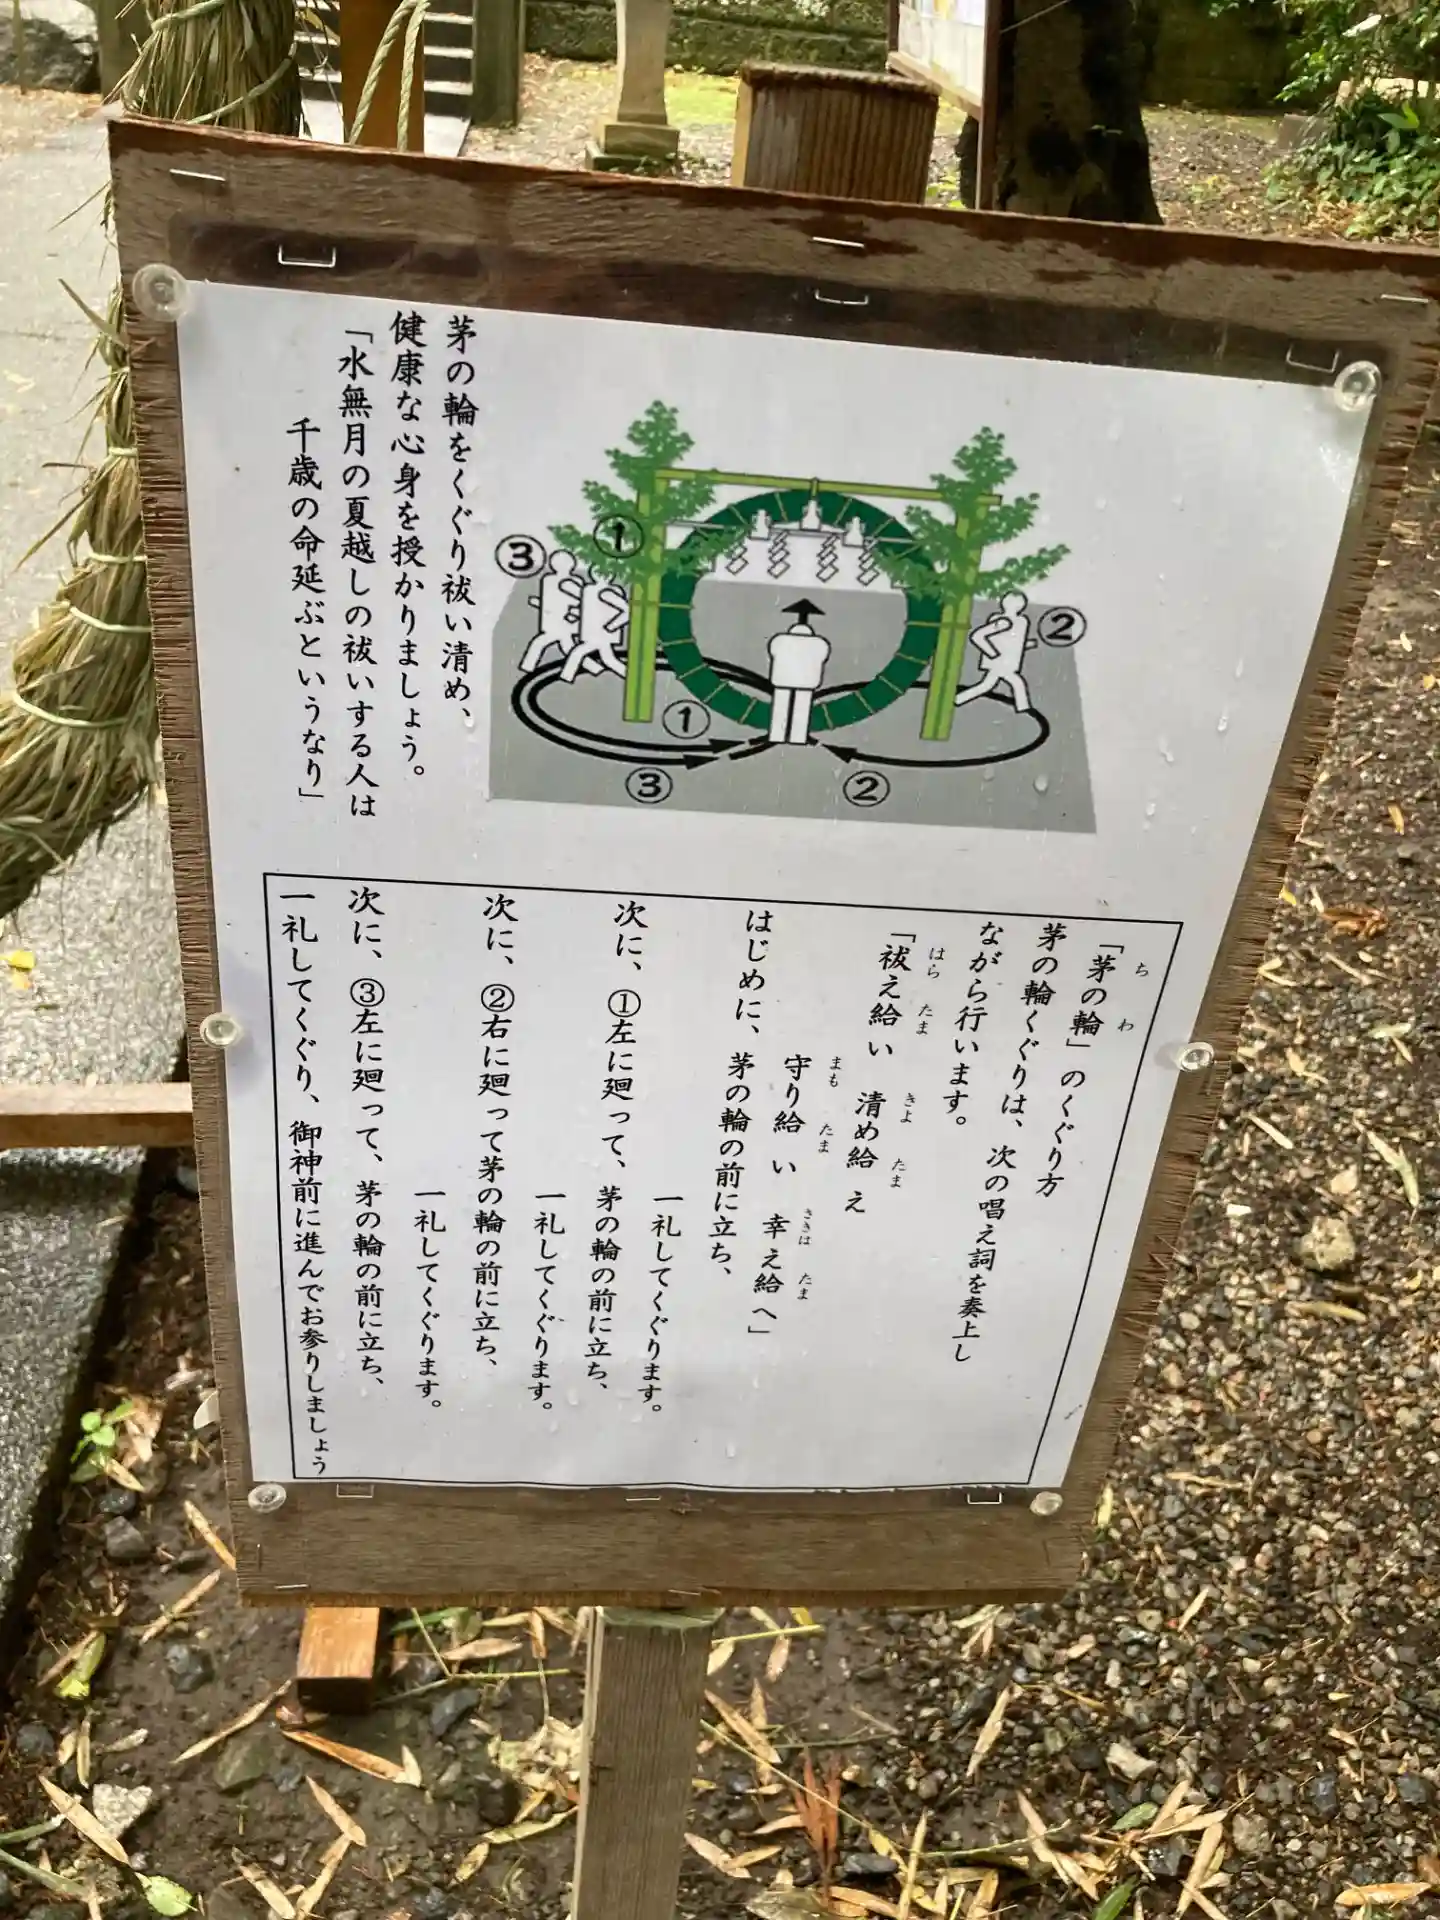 茅の輪をくぐり祓い清め、
健康な心身を授かりましょう。
「水無月の夏越しの祓いする人は
千歳の命延ぶというなり」
①
③
②
①
③
②
「茅の輪」のくぐり方
ち わ
茅の輪くぐりは、次の唱え詞を奏上し
ながら行います。
「祓え給い 清め給 え
はら たま きよ たま
守り給 い 幸え給へ」
まも たま ささは たま
はじめに、茅の輪の前に立ち、
一礼してくぐります。
次に、①左に廻って、茅の輪の前に立ち、
一礼してくぐります。
次に、②右に廻って茅の輪の前に立ち、
一礼してくぐります。
次に、③左に廻って、茅の輪の前に立ち、
一礼してくぐり、御神前に進んでお参りしましょう